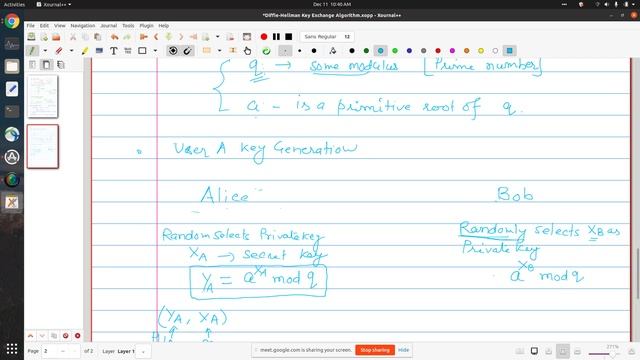 Activities
Xournal++
Dec 11 10:40 AM
*Diffie-Hellman Key Exchange Algorithm.xopp - Xournal++
File Edit View Navigation Journal Tools Plugin Help
Sans Regular 12
q → some modulus [Prime number]
a - is a primitive root of q.
User A Key Generation
Alice
Bob
Random selects Private key
XA → secret key
YA = a^XA mod q
(YA, XA)
Randomly selects XB as
Private key
a^XB mod q
Page 2 of 2 Layer Layer 1
meet.google.com is sharing your screen.
Stop sharing
Hide
271%